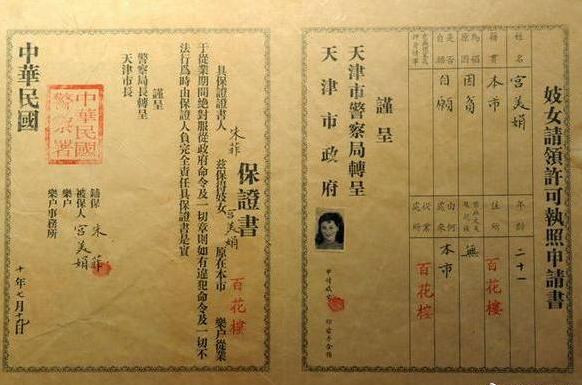 妓女請領許可執照申請書
姓名 宮美娟 年齡 二十一
籍貫 本市 住所 百花樓
為娼原因 因窮 無
是否自願 自願 由何處來 本市
從業處所 百花樓
謹呈
天津市警察局轉呈
天津市政府
保證書
具保證書人 朱菲 茲保得妓女 宮美娟 原在本市 百花樓 樂户從業
于從業期間絶對服從政府命令及一切章則如有違犯命令及一切不
法行爲時由保證人負完全責任具保證書是實
謹呈
警察局長轉呈
天津市長
中華民國警察署
鋪保 朱菲
被保人 宮美娟
樂户
樂户事務所
中華民國
十年七月十九日